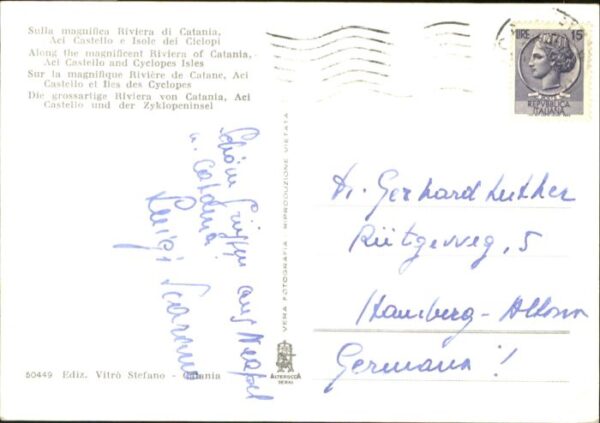 Sulla magnifica Riviera di Catania,
Aci Castello e Isole dei Ciclopi
Along the magnificent Riviera of Catania,
Aci Castello and Cyclopes Isles
Sur la magnifique Rivière de Catane, Aci
Castello et Iles des Cyclopes
Die grossartige Riviera von Catania, Aci
Castello und der Zyklopeninsel
LIRE 15
REPVBBLICA
ITALIANA
Schöne Grüßen aus Neapel
u. Catania
Luigi
VERA FOTOGRAFIA - RIPRODUZIONE VIETATA
Dr. Gerhard Luther
Rütgerweg, 5
Hamburg-Altona
Germania!
50449 Ediz. Vitrò Stefano - Catania
ALTEROCCA
TERNI